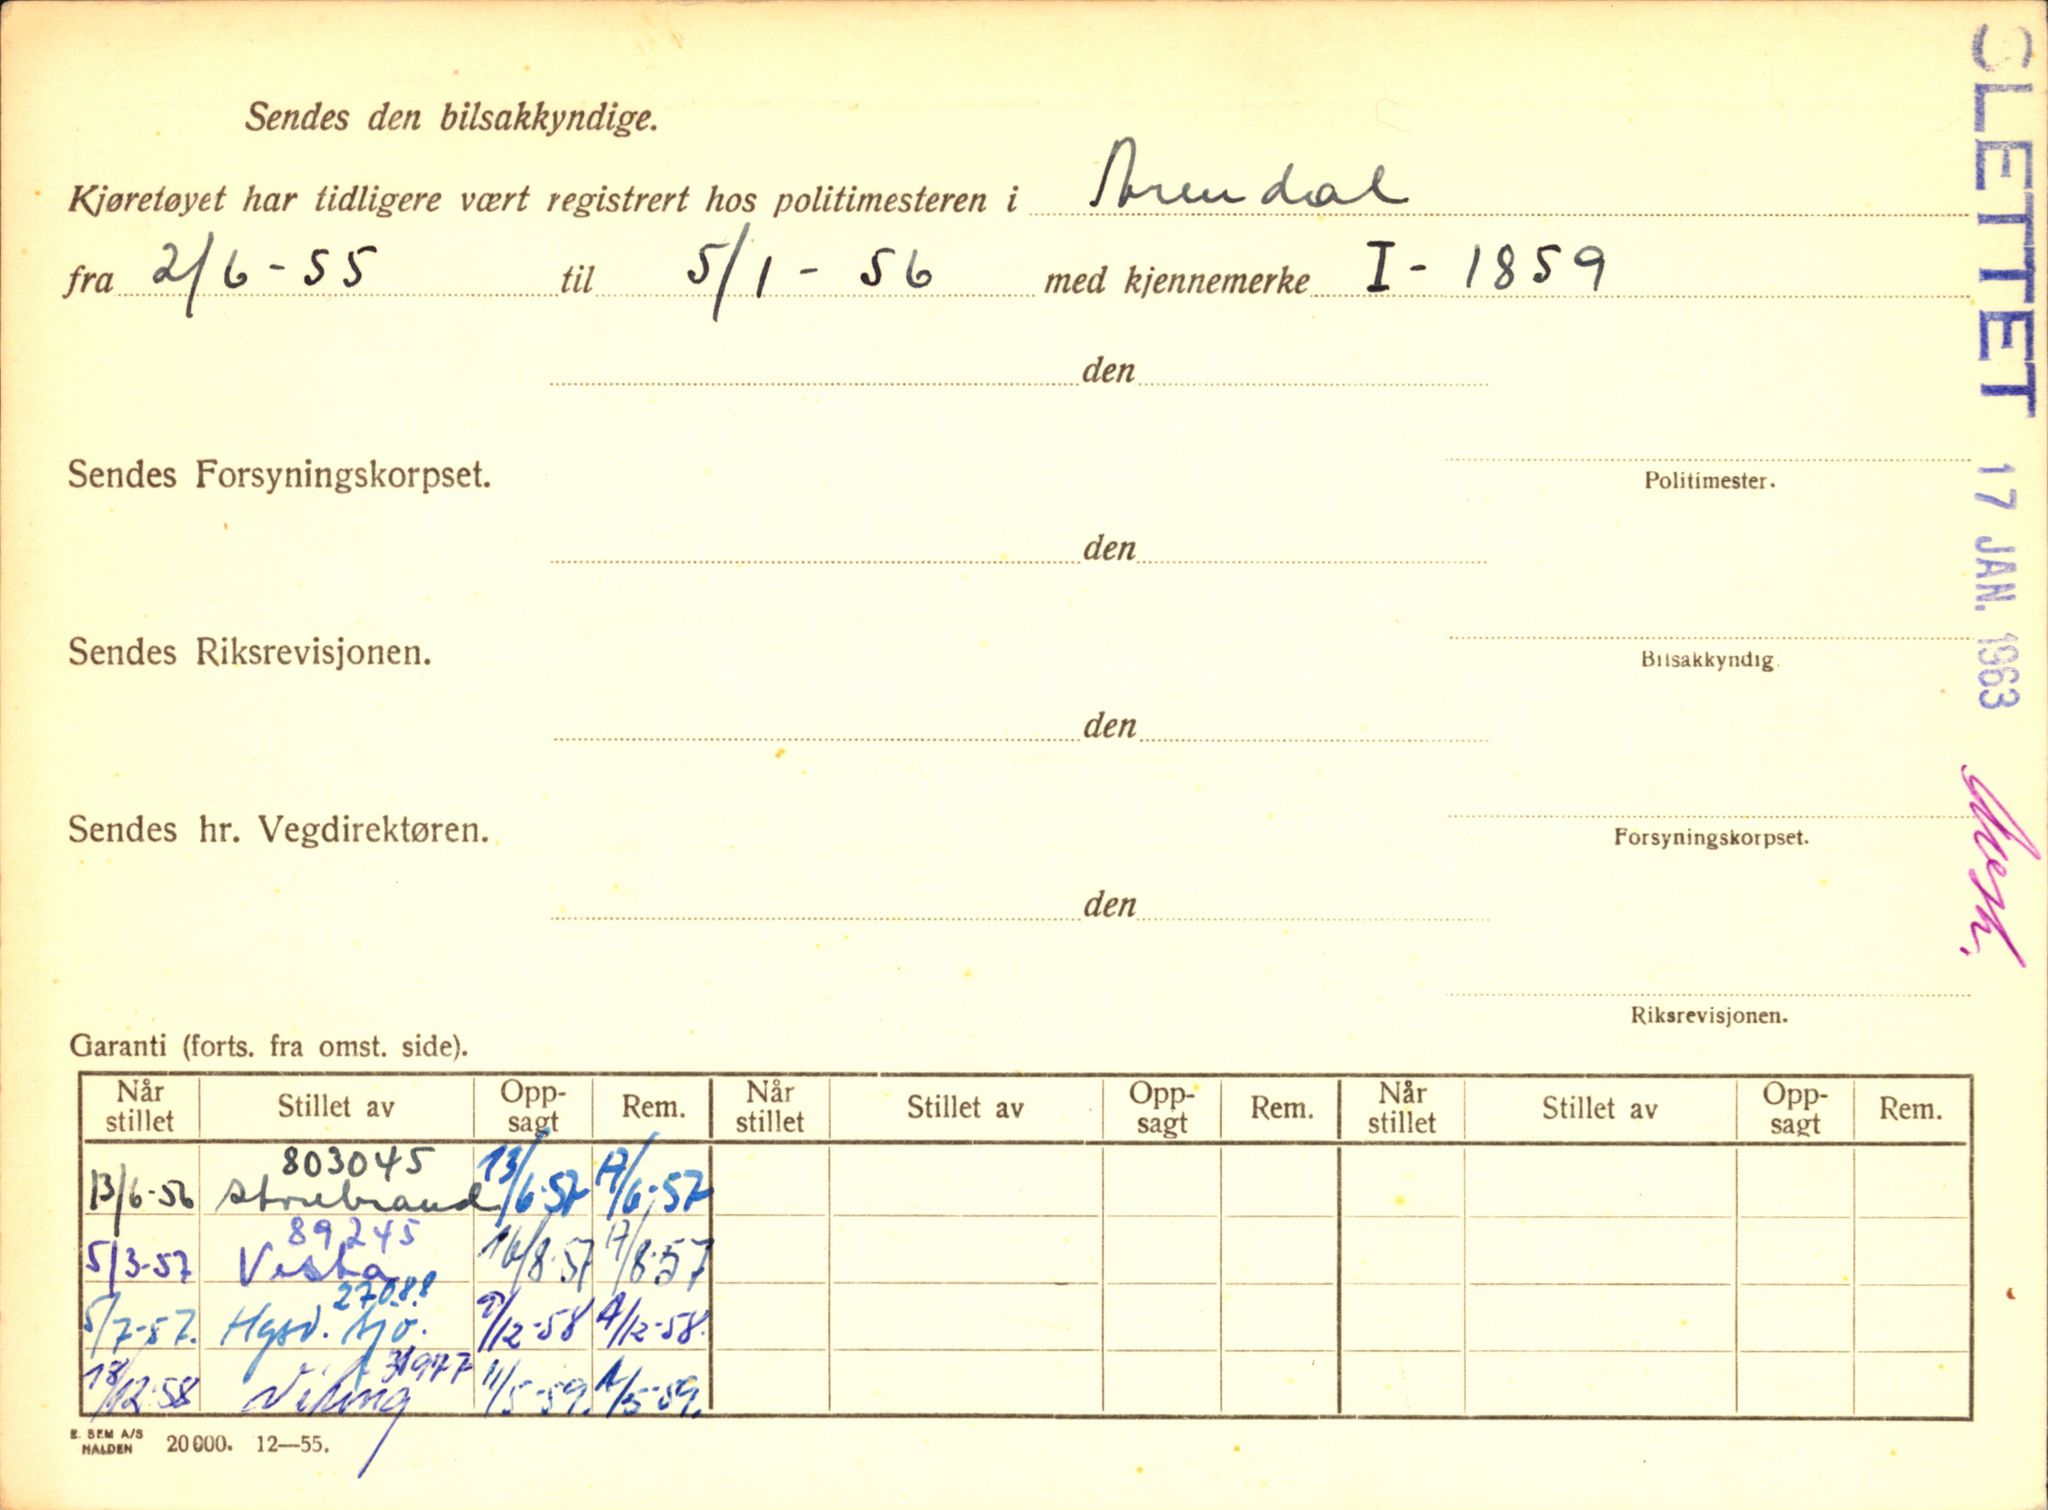 Sendes den bilsakkyndige.
Kjøretøyet har tidligere vært registrert hos politimesteren i Arendal
fra 2/6-55 til 5/1-56 med kjennemerke I-1859
den
Politimester.
Sendes Forsyningskorpset.
den
Bilsakkyndig
Sendes Riksrevisjonen.
den
Forsyningskorpset.
Sendes hr. Vegdirektøren.
den
Riksrevisjonen.
Garanti (forts. fra omst. side).
Når stillet Stillet av Opp-sagt Rem. Når stillet Stillet av Opp-sagt Rem. Når stillet Stillet av Opp-sagt Rem.
803045
13/6-56 Storebrand 13/6-57 17/6-57
89245
5/3-57 Vesta 16/8-57 17/8-57
27088
5/7-57. Hgsd. sjø. /12-58 /12-58.
31977
18/12-58 Viking 11/5-59. /5-59.
E. SEM A/S
HALDEN 20000. 12—55.
SLETTET 17 JAN. 1963